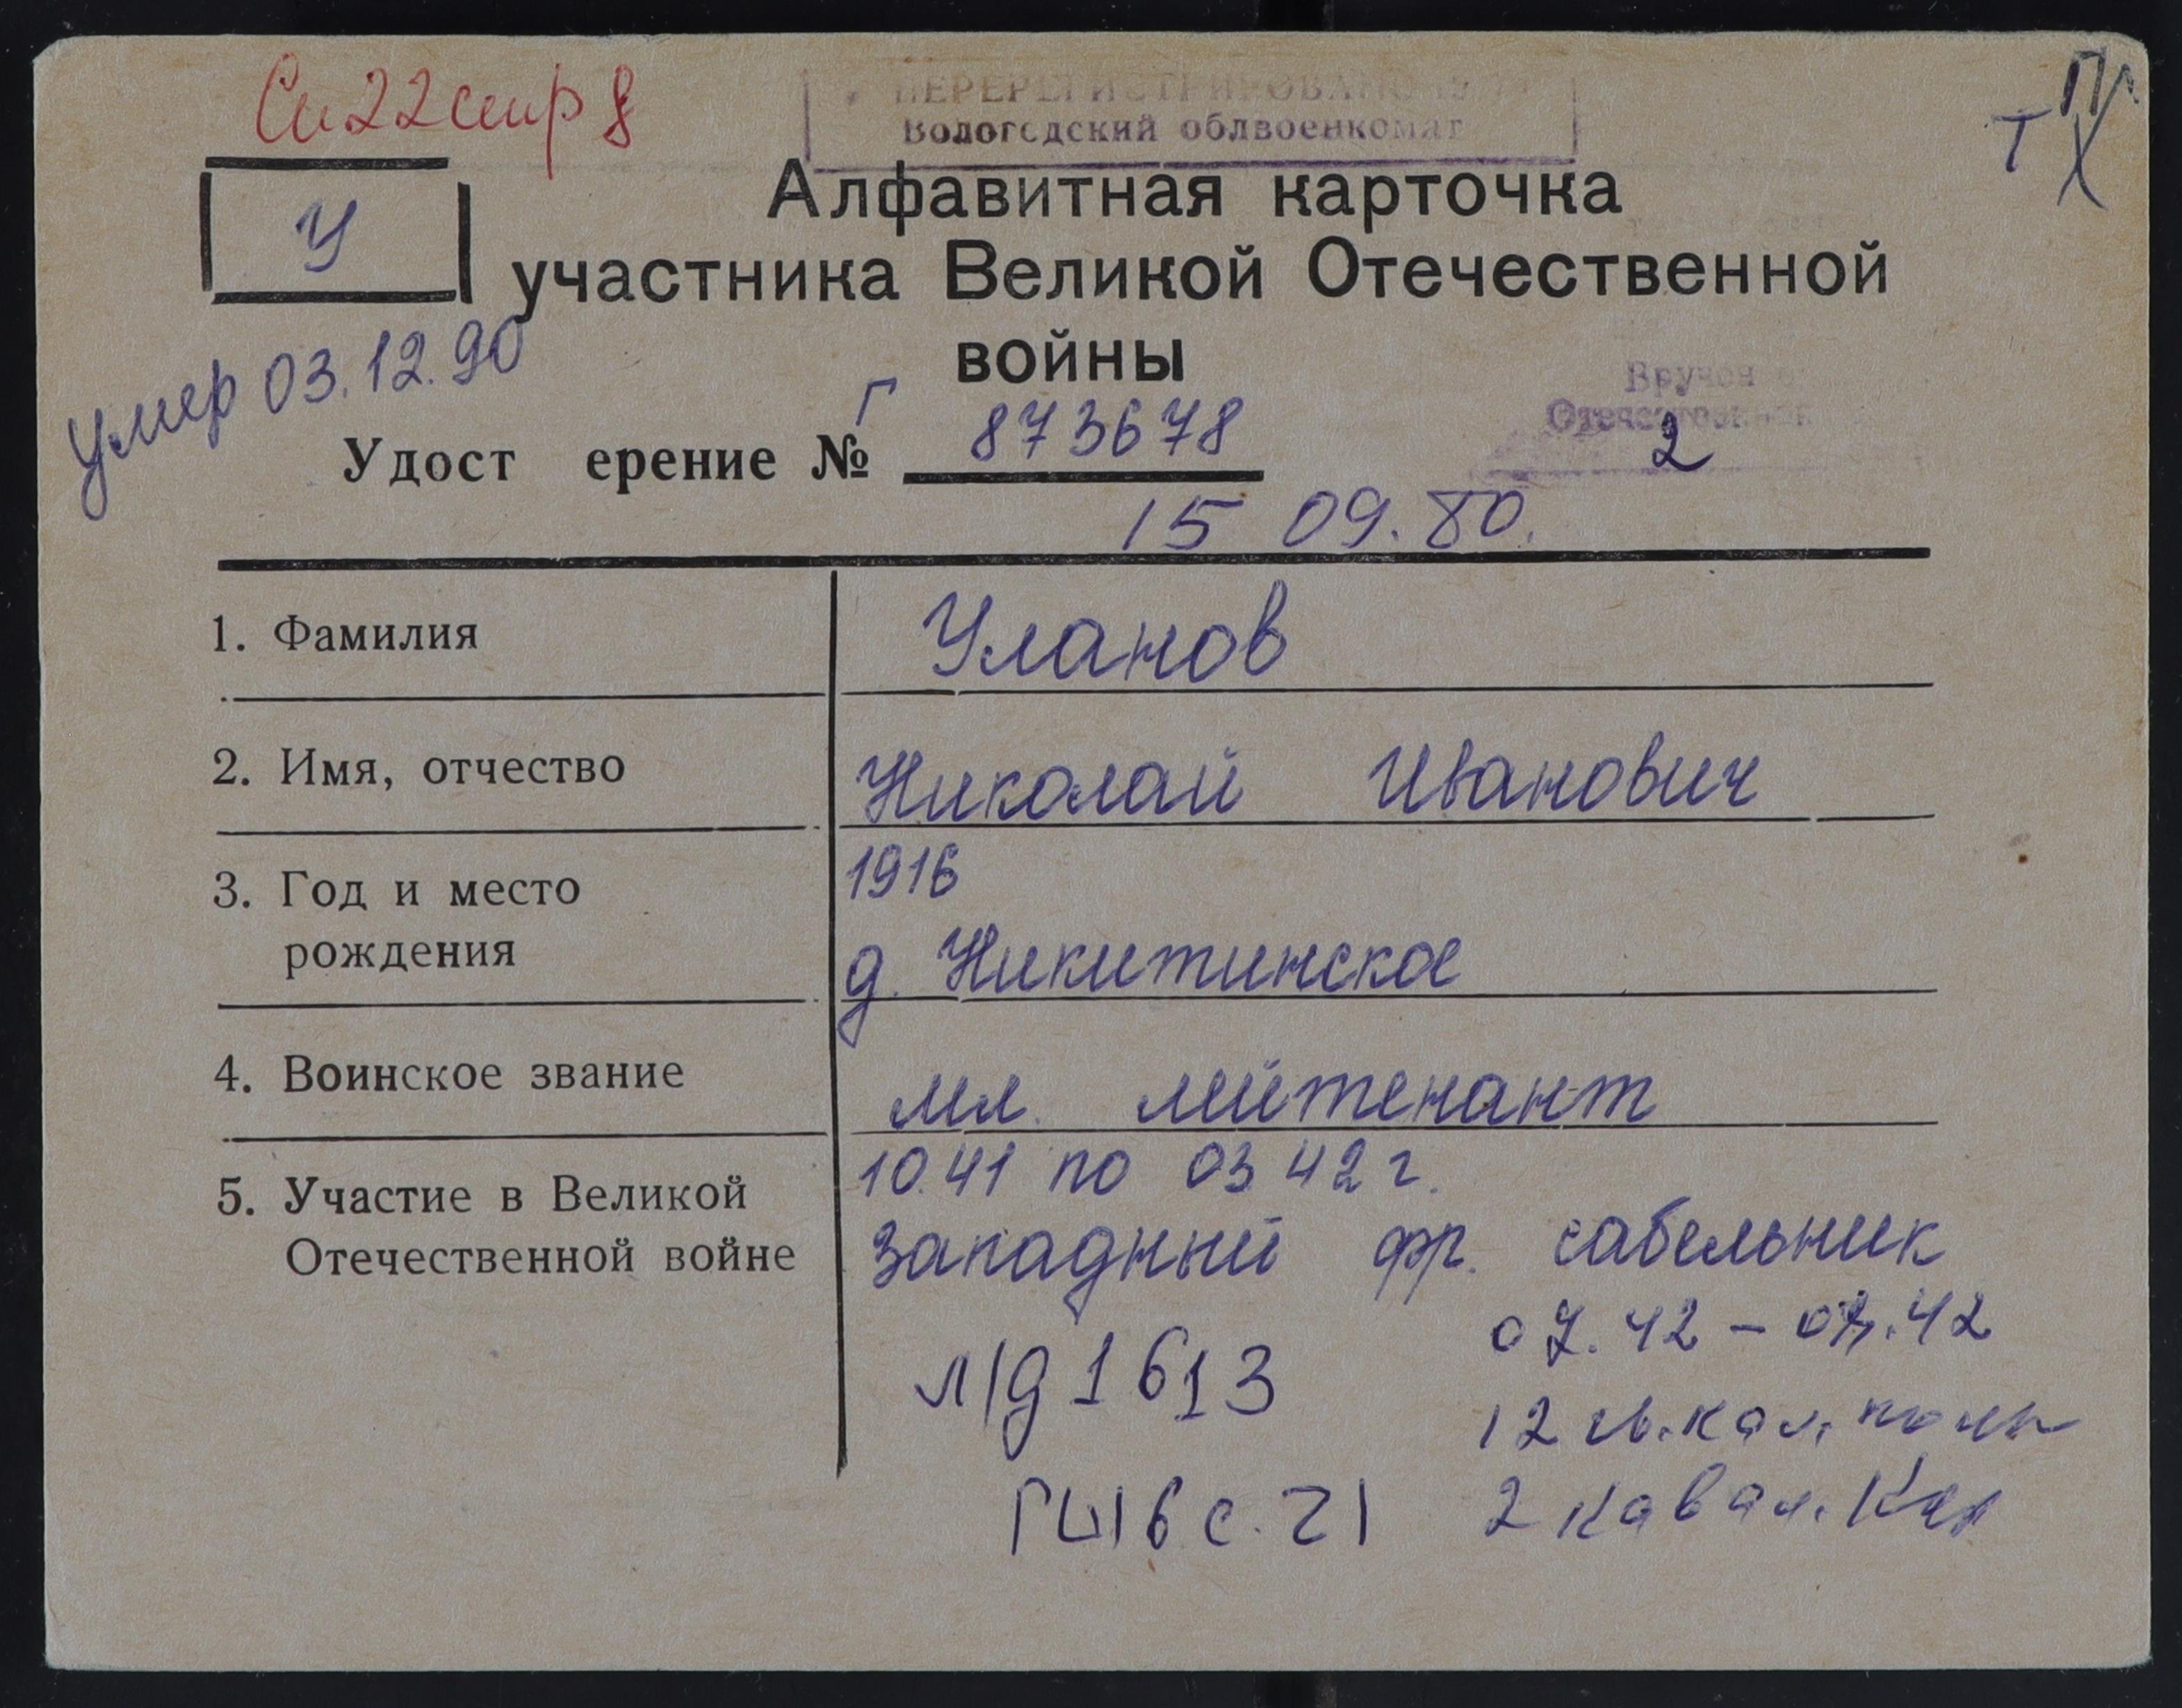 Сп 22 стр 8
ПЕРЕРЕГИСТРИРОВАНО
Вологодский облвоенкомат
У
Алфавитная карточка
участника Великой Отечественной
войны
умер 03.12.90
Удост ерение № Г 873678
Вручен
Отечественной
2
15 09.80.
1. Фамилия Уланов
2. Имя, отчество Николай Иванович
3. Год и место 1916
рождения д. Никитинское
4. Воинское звание мл. лейтенант
5. Участие в Великой 10.41 по 03 42 г.
Отечественной войне Западный фр. сабельник
07.42 –
л/д 1613
12 гв. кав. полк
2 кавал.